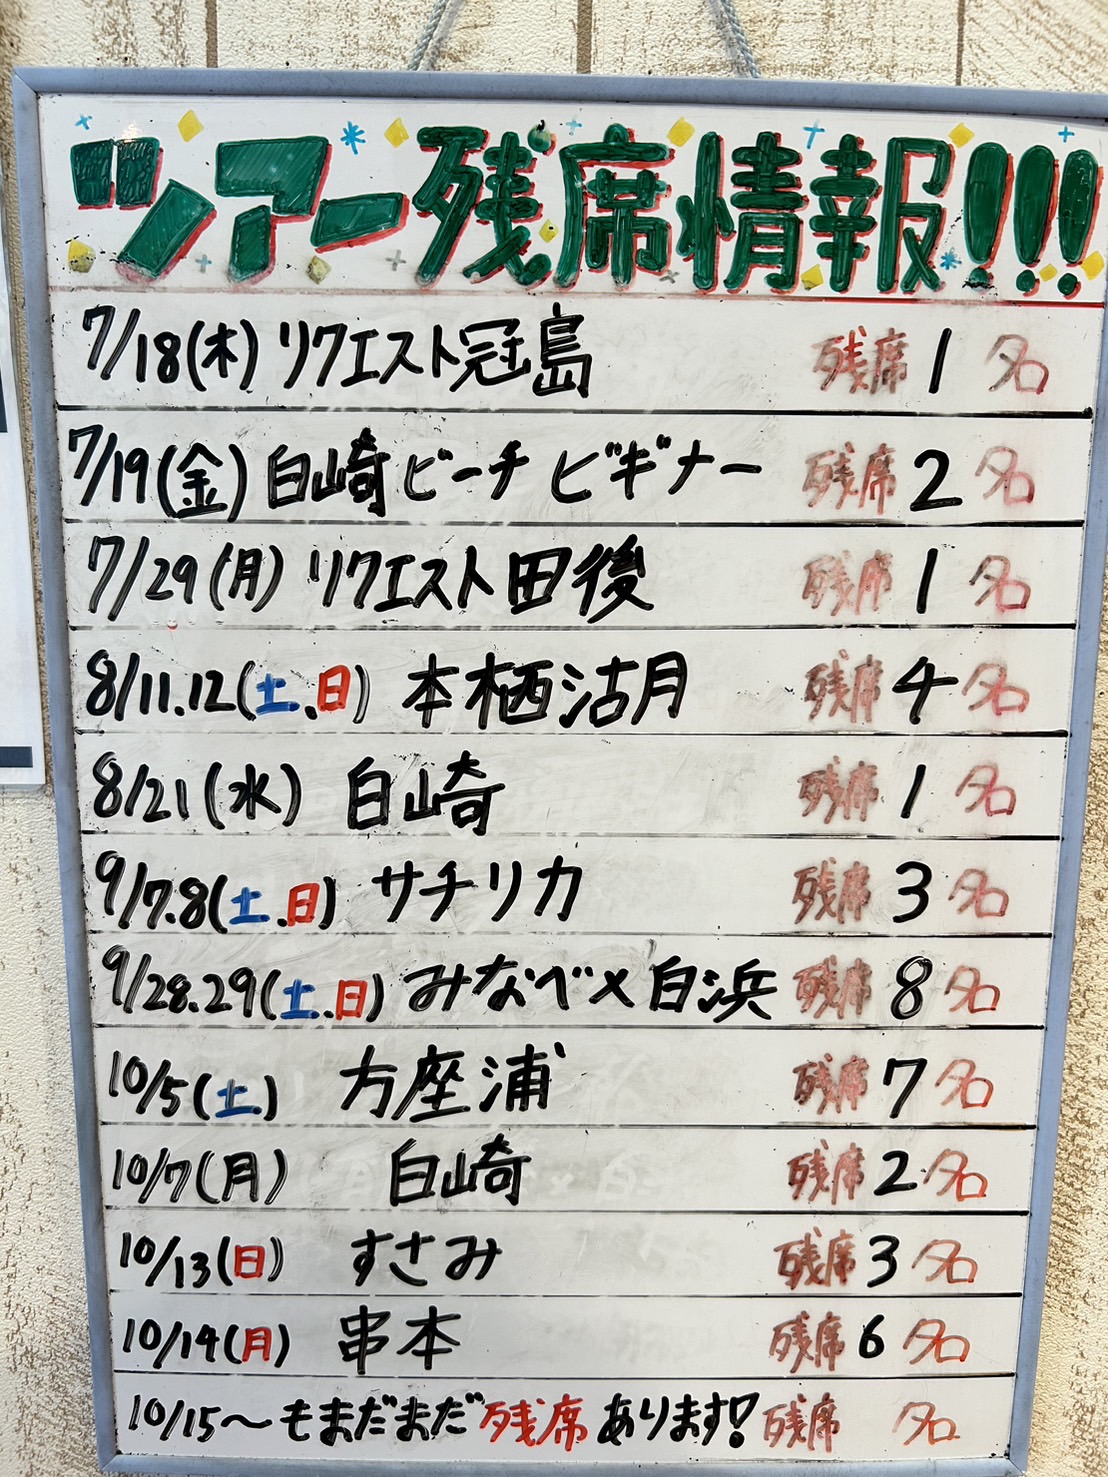 ツアー残席情報!!!
7/18(木) リクエスト冠島 残席 1 名
7/19(金)白崎ビーチ ビギナー 残席 2 名
7/29(月) リクエスト田後 残席 1 名
8/11.12(土.日) 本栖沽月 残席 4 名
8/21(水) 白崎 残席 1 名
9/7.8(土.日) サチリカ 残席 3 名
9/28.29(土.日) みなべ×白浜 残席 8 名
10/5(土) 方座浦 残席 7 名
10/7(月) 白崎 残席 2 名
10/13(日) すさみ 残席 3 名
10/14(月) 串本 残席 6 名
10/15～もまだまだ残席あります! 残席 名